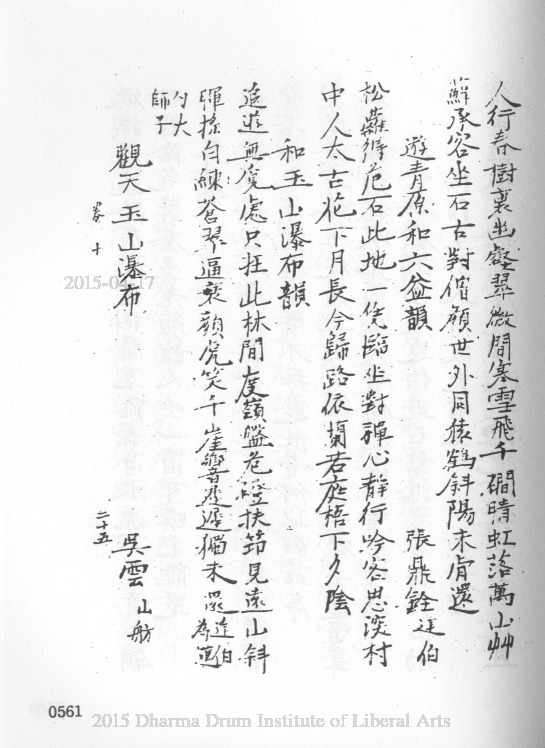 人行春樹裏出壑翠微間寒雪飛千磵晴虹落萬山艸
蘚承容坐石古對僧顏世外同猿鶴斜陽未肯還
遊青原和六益韻 張鼎銓廷伯
松蘿倚危石此地一凭臨坐對禪心靜行吟客思淡村
中人太古花下月長今歸路依蘭若庭梧下夕陰
和玉山瀑布韻
追遊無度處只在此林間度嶺盤危磴扶笻見遠山斜
揮搖白練蒼翠逼衰顏虎笑千崖響遲遲獨未還
廷伯為
勺大
師子
觀天玉山瀑布 吳雲山舫
卷十
二十五
2015-04-17
0561
2015 Dharma Drum Institute of Liberal Arts